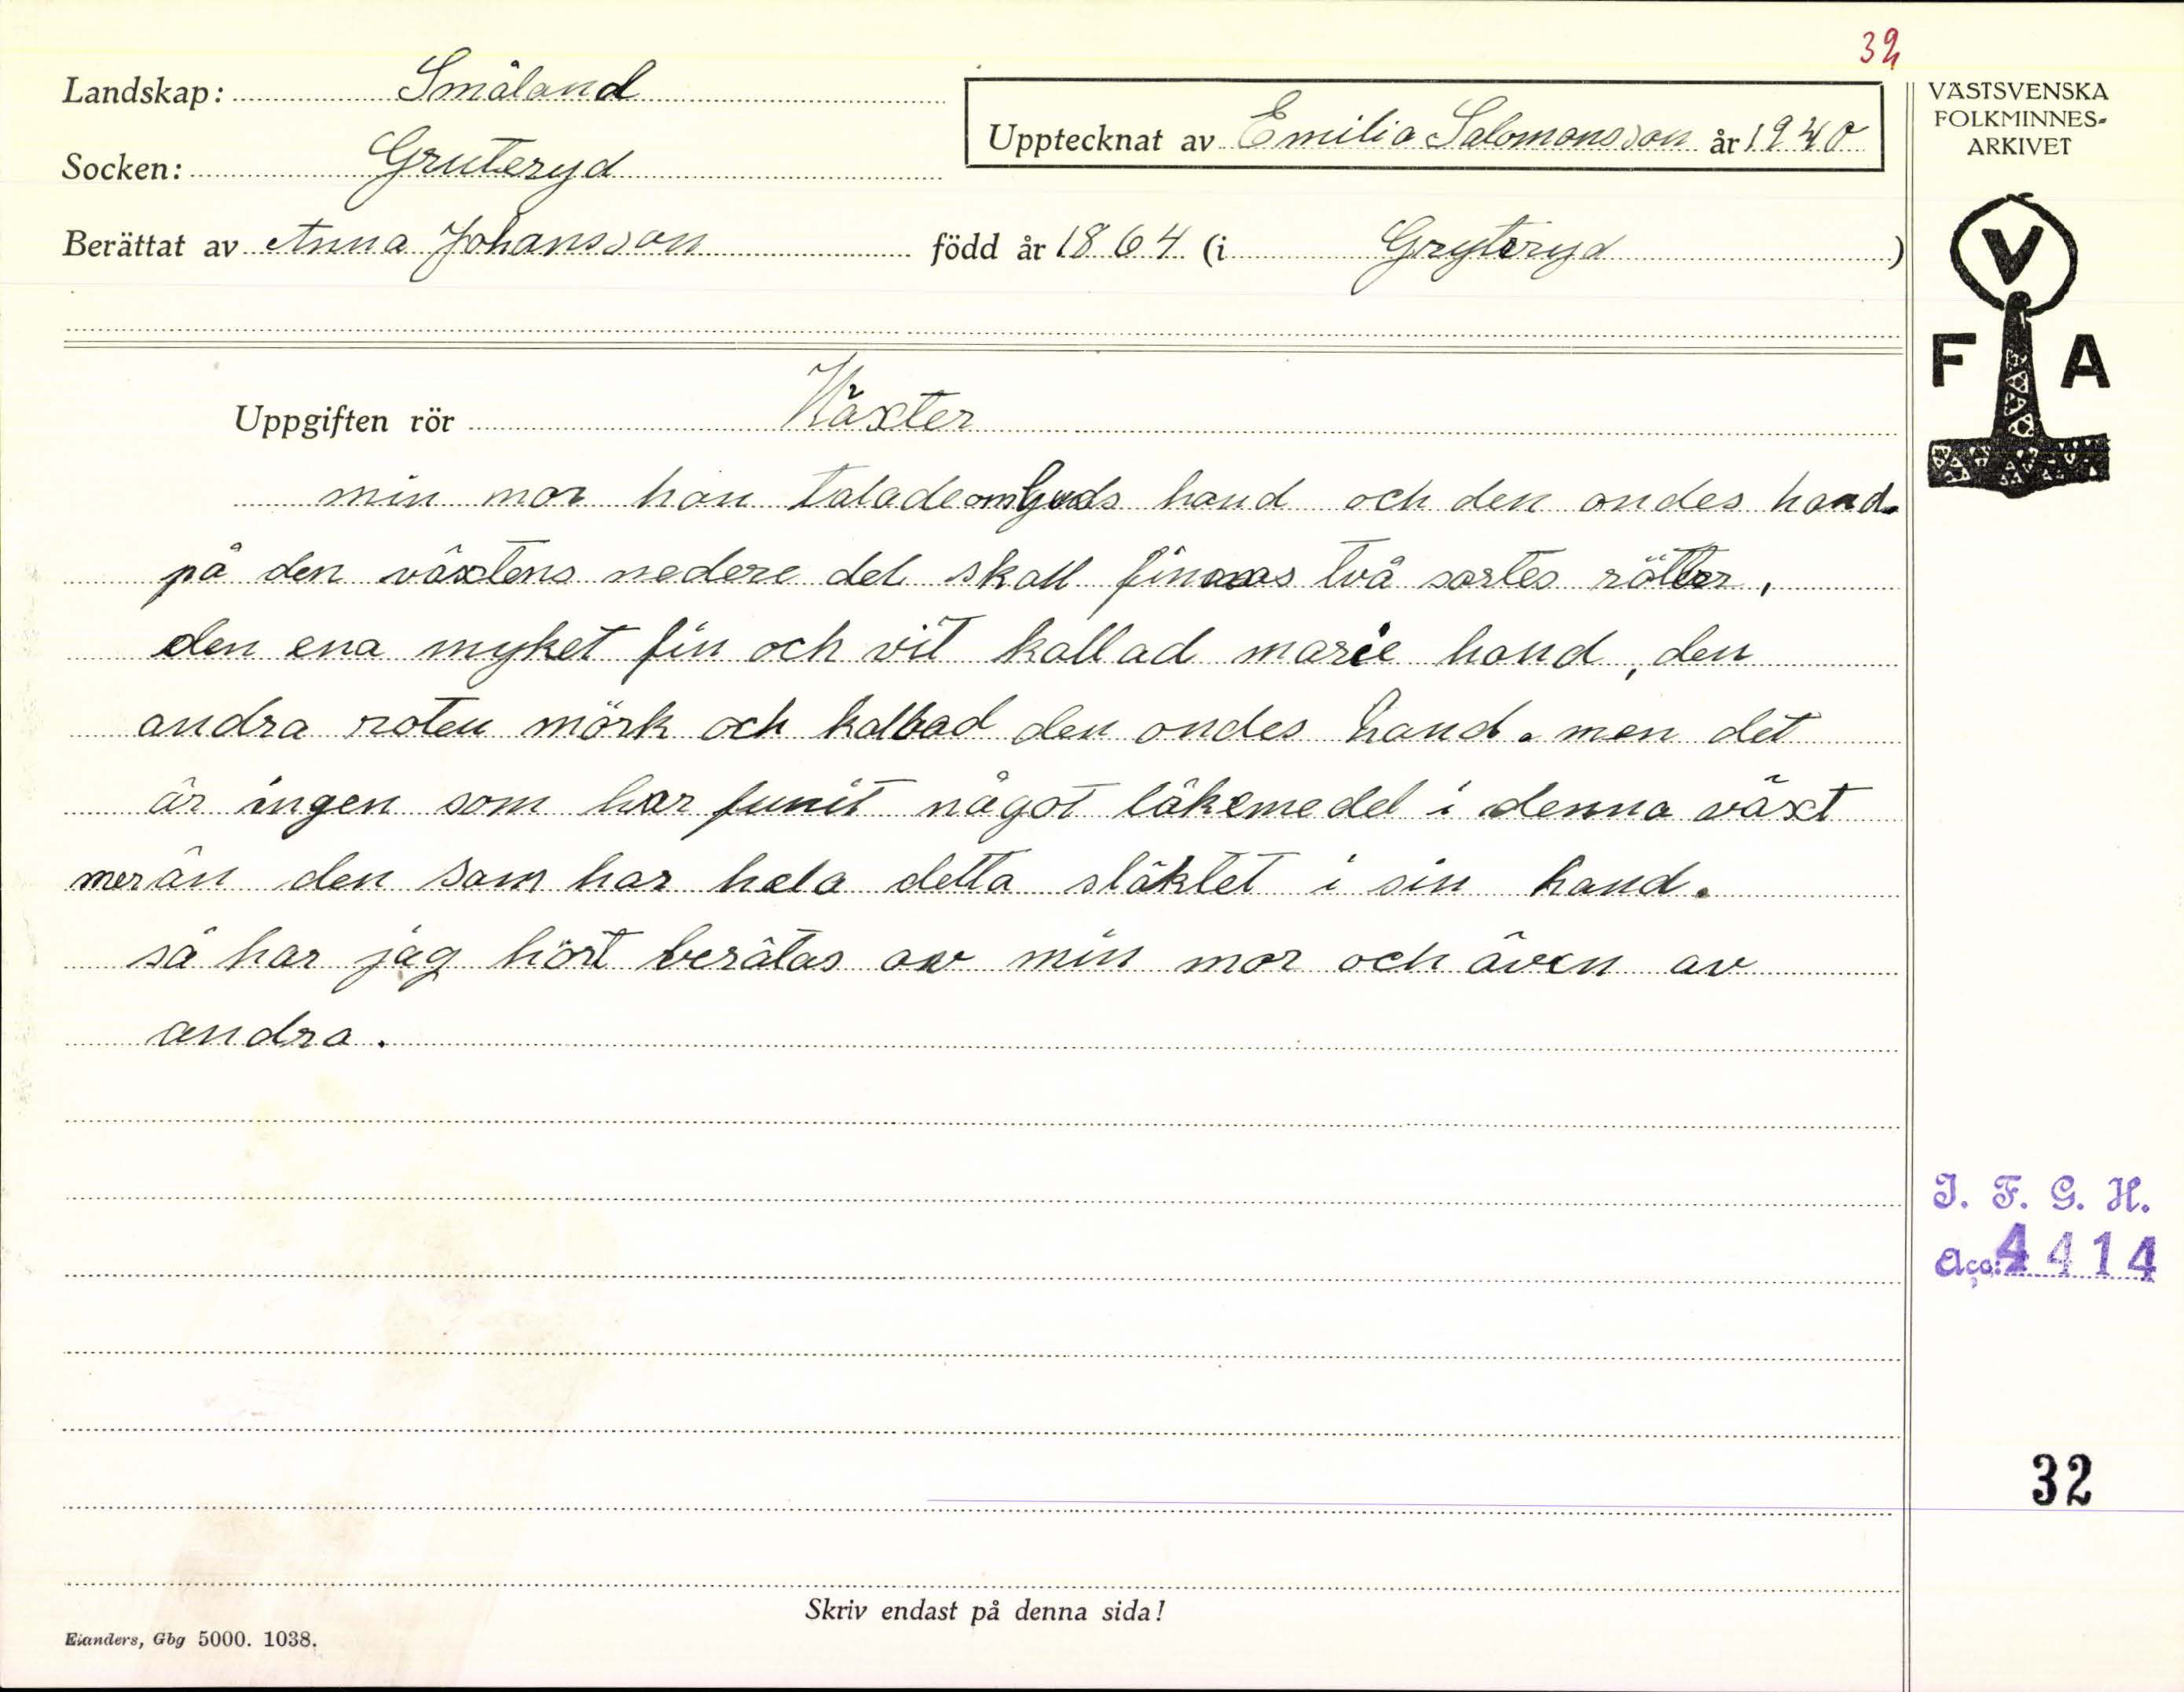 32
Landskap: Småland
Upptecknat av Emilia Salomonsson år 1940
Socken: Gruteryd
Berättat av Anna Johansson född år 1864 (i Gryteryd)
VÄSTSVENSKA
FOLKMINNES-
ARKIVET
V
F A
Uppgiften rör Wäxter
min mor hon talade om Guds hand och den ondes hand.
på den växtens nedere del skall finnas två sortes rötter,
den ena myket fin och vit kallad marie hand, den
andra roten mörk och kallad den ondes hand. men det
är ingen som har funit något läkemedel i denna växt
mer än den som har hela detta släktet i sin hand.
så har jag hört berätas av min mor och även av
andra.
I. F. G. H.
Acc. 4414
32
Skriv endast på denna sida!
Elanders, Gbg 5000. 1038.